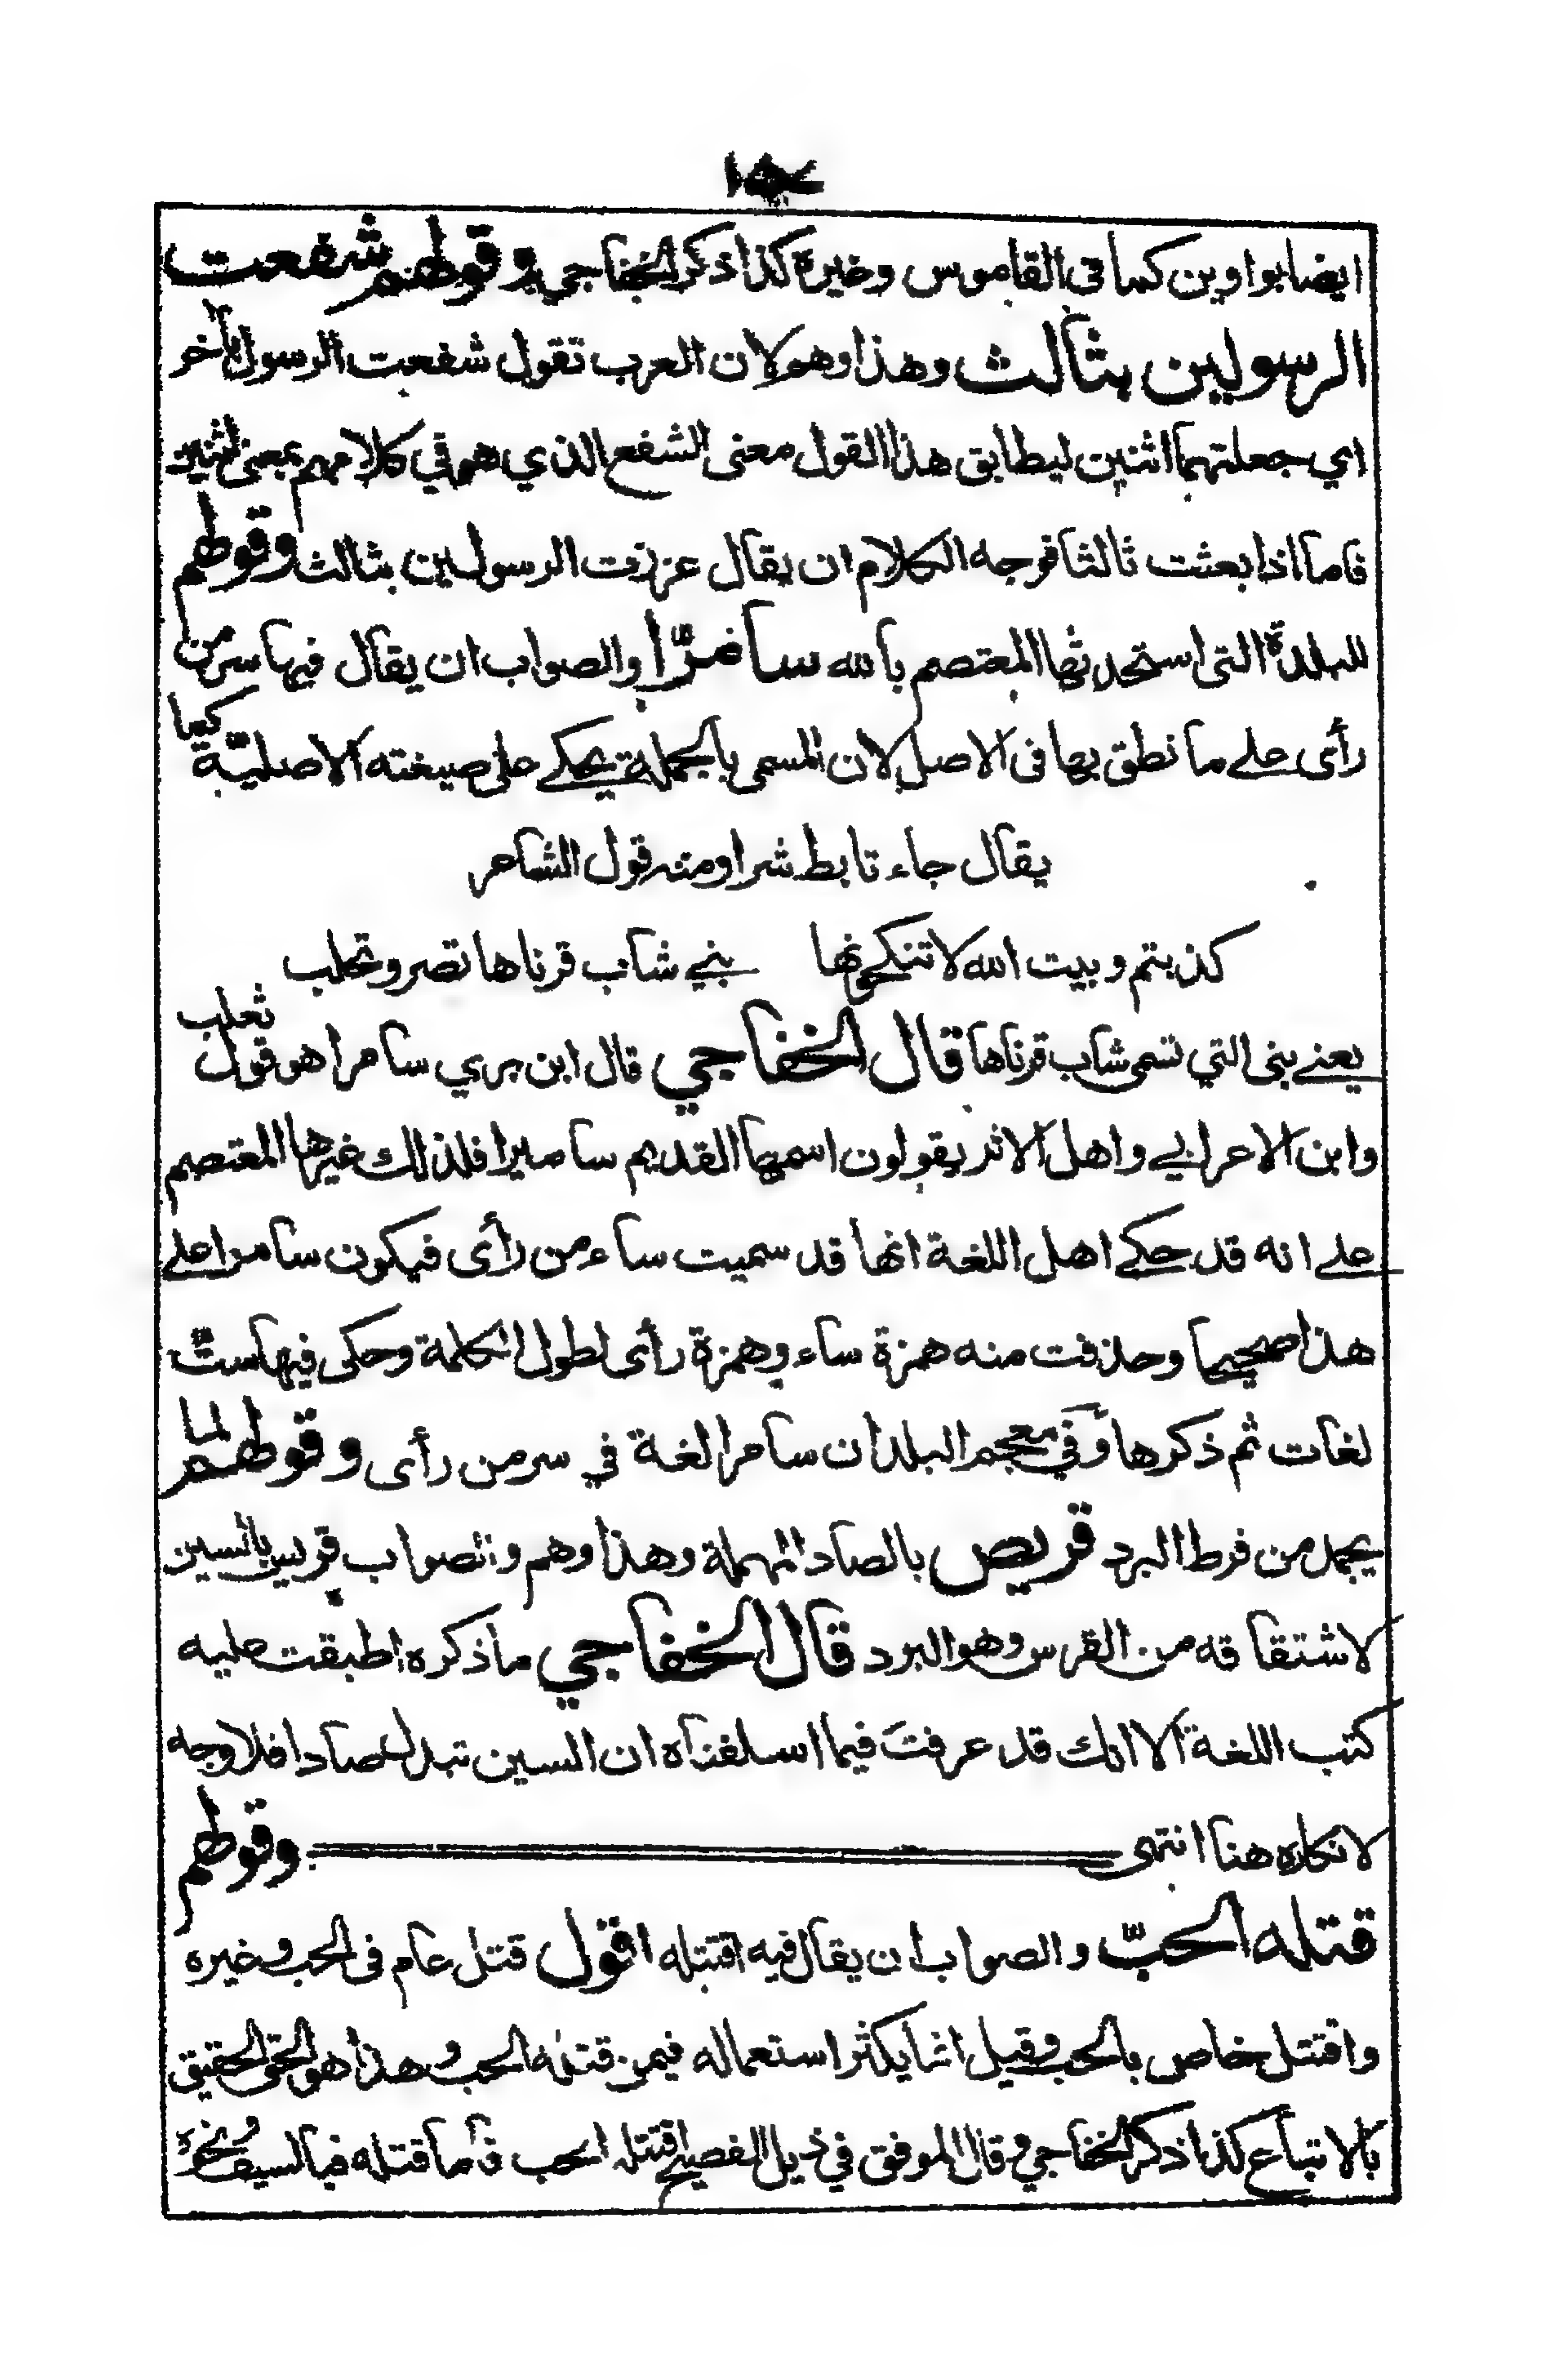 ايضا بواوين كما في القاموس وغيره كذا ذكر الخفاجي وقولهم شفعت
الرسولين بثالث وهذا وهم لان العرب تقول شفعت الرسول بآخر
اي جعلتهما اثنين ليطابق هذا القول معنى الشفع الذي هو في كلامهم بمعنى اثنين
فاما اذا بعثت ثالثا فوجه الكلام ان يقال عززت الرسولين بثالث وقولهم
للبلدة التى استحدثها المعتصم بالله سامرّا والصواب ان يقال فيها سر من
رأى على ما نطق بها فى الاصل لان المسمى بالجملة يحكى على صيغته الاصليّة كما
يقال جاء تابط شرا ومنه قول الشاعر
كذبتم وبيت الله لا تنكحونها بنى شاب قرناها تصر وتحلب
يعنى بنى التي تسمى شاب قرناها قال الخفاجي قال ابن بري سامرا هو قول ثعلب
وابن الاعرابي واهل الاثر يقولون اسمها القديم ساميرا فلذلك غيرها المعتصم
على انه قد حكى اهل اللغة انها قد سميت ساء من رأى فيكون سامرا على
هذا صحيحا وحذفت منه همزة ساء وهمزة رأى لطول الكلمة وحكى فيها ستّ
لغات ثم ذكرها وفي معجم البلدان سامرا لغة في سر من رأى وقولهم لما
يجمد من فرط البرد قريص بالصاد المهملة وهذا وهم والصواب قريس بالسين
لاشتقاقه من القرس وهو البرد قال الخفاجي ما ذكره اطبقت عليه
كتب اللغة الا انك قد عرفت فيما اسلفناه ان السين تبدل صادا فلا وجه
لانكاره هنا انتهى وقولهم
قتله الحبّ والصواب ان يقال فيه اقتتله اقول قتل عام فى الحب وغيره
واقتتل خاص بالحب وقيل انما يكثر استعماله فيمن قتله الحب وهذا هو الحق الحقيق
بالاتباع كذا ذكر الخفاجي وقال الموفق في ذيل الفصيح اقتتله الحب فأما قتله فبالسيف ونحوه